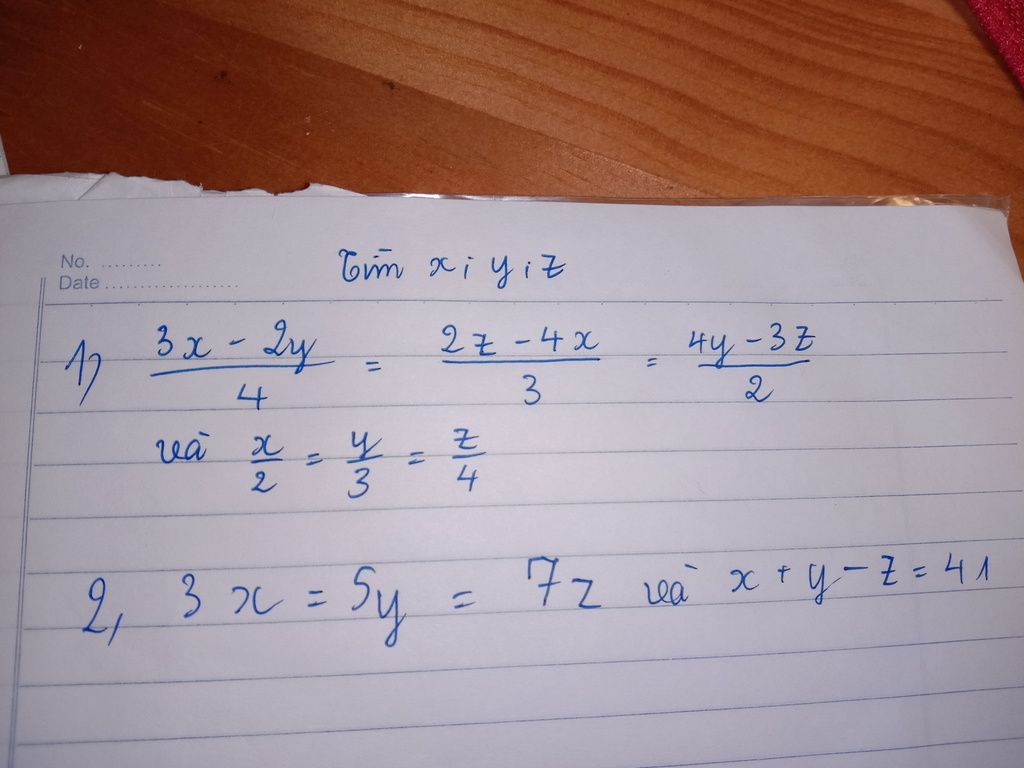 No. .........
Date ...................
Tìm x; y; z
1) (3x - 2y)/4 = (2z - 4x)/3 = (4y - 3z)/2
và x/2 = y/3 = z/4
2, 3x = 5y = 7z và x + y - z = 41